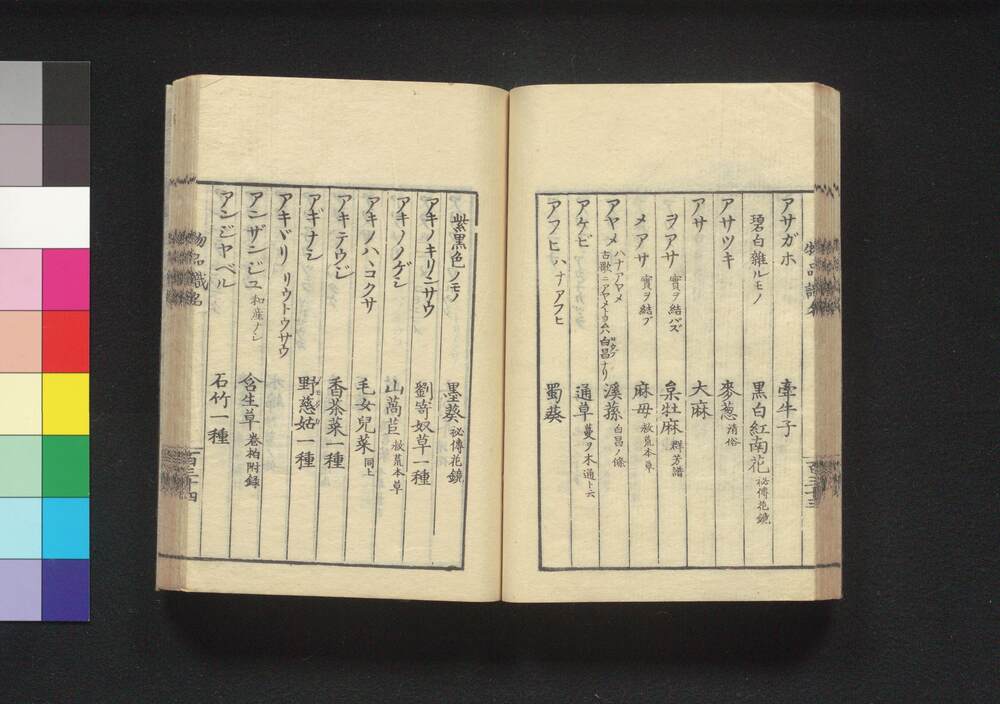 アサガホ 牽牛子
碧白雜ルモノ 黒白紅南花 祕傳花鏡
アサツキ 麥葱 清俗
アサ 大麻
ヲアサ 實ヲ結バズ 枲牡麻 群芳譜
メアサ 實ヲ結ブ 麻母 救荒本草
アヤメ ハナアヤメ 古歌ニアヤメトヨムハ白昌ナリ 溪蓀 白昌ノ條
アケビ 通草 蔓ヲ木通ト云
アフヒ ハナアフヒ 蜀葵
紫黒色ノモノ 墨葵 祕傳花鏡
アキノキリンサウ 劉寄奴草一種
アキノノゲシ 山萵苣 救荒本草
アキノハヽコクサ 毛女兒菜 同上
アキテウジ 香茶菜一種
アギナシ 野慈姑一種
アキギリ リウトウサウ
アンザンジユ 和産ナシ 含生草 巻柏附録
アンジヤベル 石竹一種
物品識名 百三十四